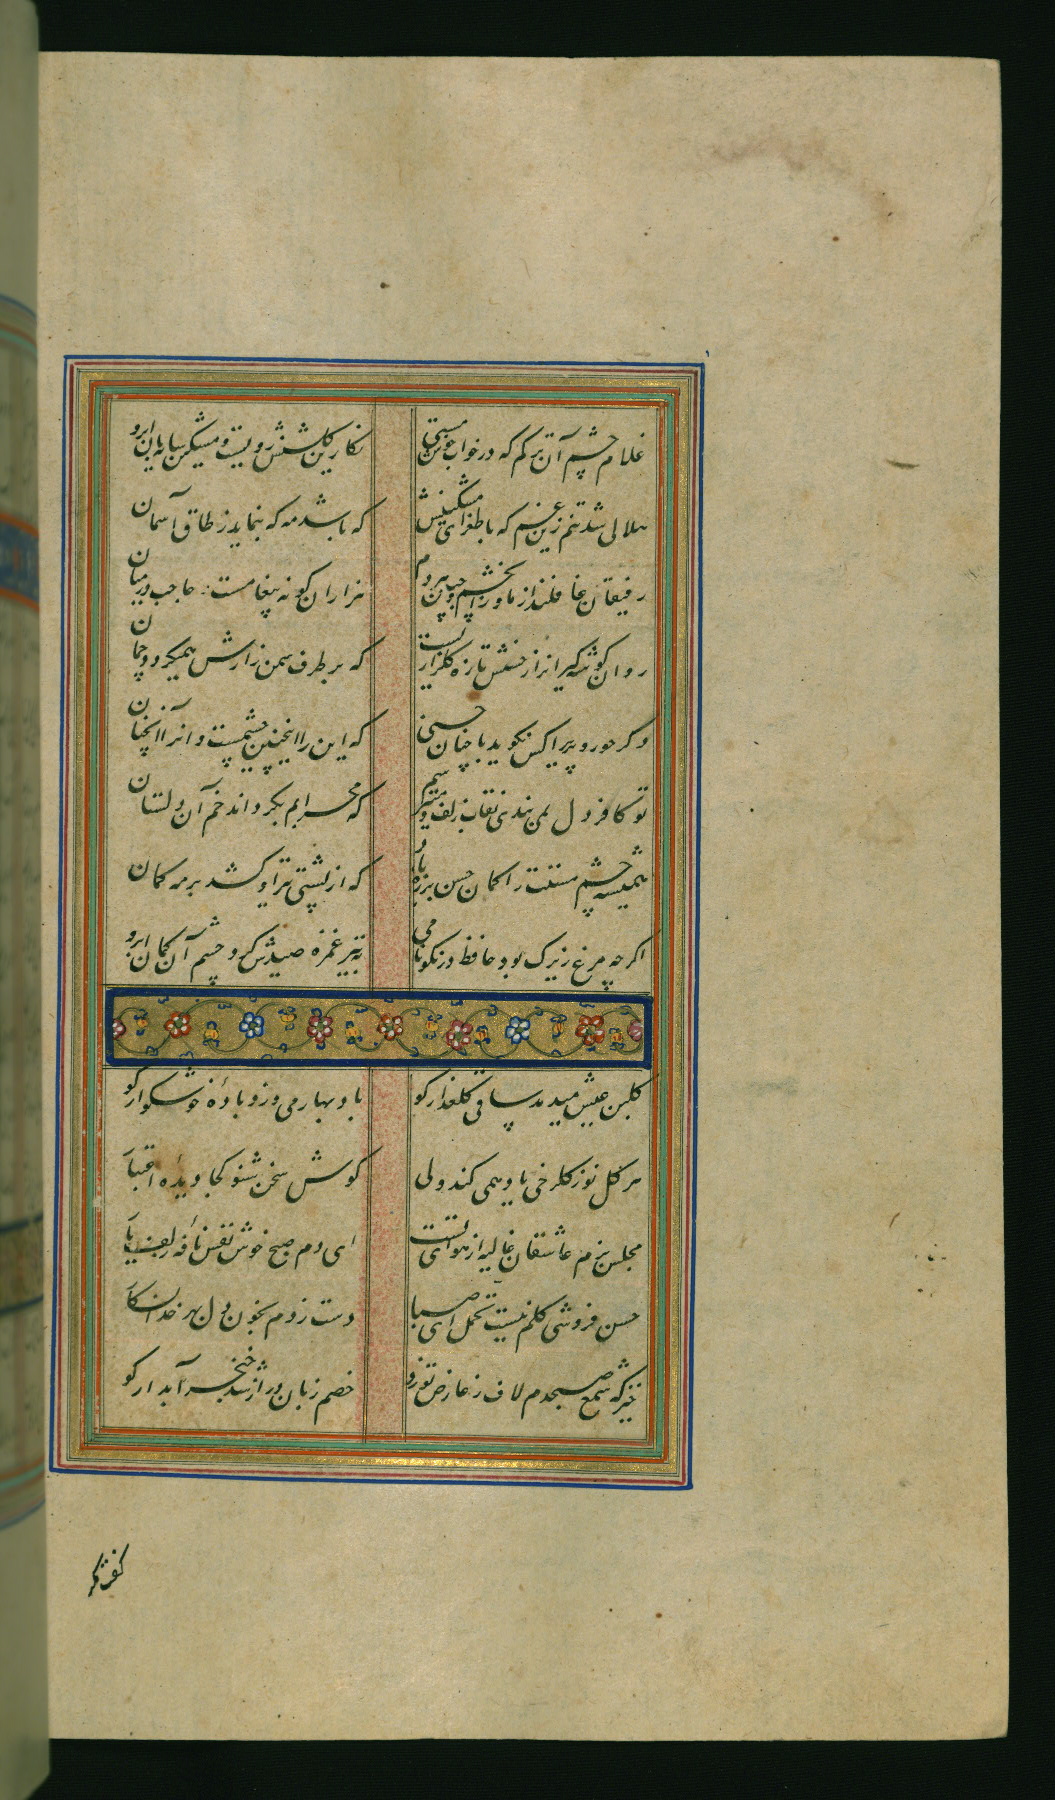 غلام چشم آن ترکم که در خواب خوش مستی
نکارین کلشنش رویست و مشکین سایبان ابرو
هلالی شد تنم زین غم که با طغرای مشکینش
که باشد مه که بنماید ز طاق آسمان
رفیقان غافلند از ما و را چشم و جبین هردم
هزاران کونه پیغامست حاجب در میان
روان کوشه کیرانرا ز حسنش تازه کلزاریست
که بر طرف سمن زارش همیکردد چمان
و کر حور و پری را کس نکوید با چنان حسنی
که این را اینچنین چشمست و آنرا آنچنان
تو کافر دل نمی بندی نقاب زلف و میترسم
که محرابم بکرداند خم آن دلستان
همیشه چشم مستت را کمان حسن بر زه باد
که از پشتی تیر او کشد بر مه کمان
اکر چه مرغ زیرک بود حافظ در نکونامی
به تیر غمزه صیدش کرد چشم آن کمان ابرو
کلبن عیش میدمد ساقی کلعذار کو
باد بهار می وزد باده خوشکوار کو
هر کل نو ز کلرخی یاد همی کند ولی
کوش سخن شنو کجا دیده اعتبا
مجلس بزم عاشقان غالیه از هوای تست
ای دم صبح خوش نفس نافه زلف یا
حسن فروشی کلم نیست تحمل ای صبا
دست زدم بخون دل بهر خدا نکا
خیز که شمع صبحدم لاف ز عارض تو زد
خصم زبان دراز شد خنجر آبدار کو
کفت مکر